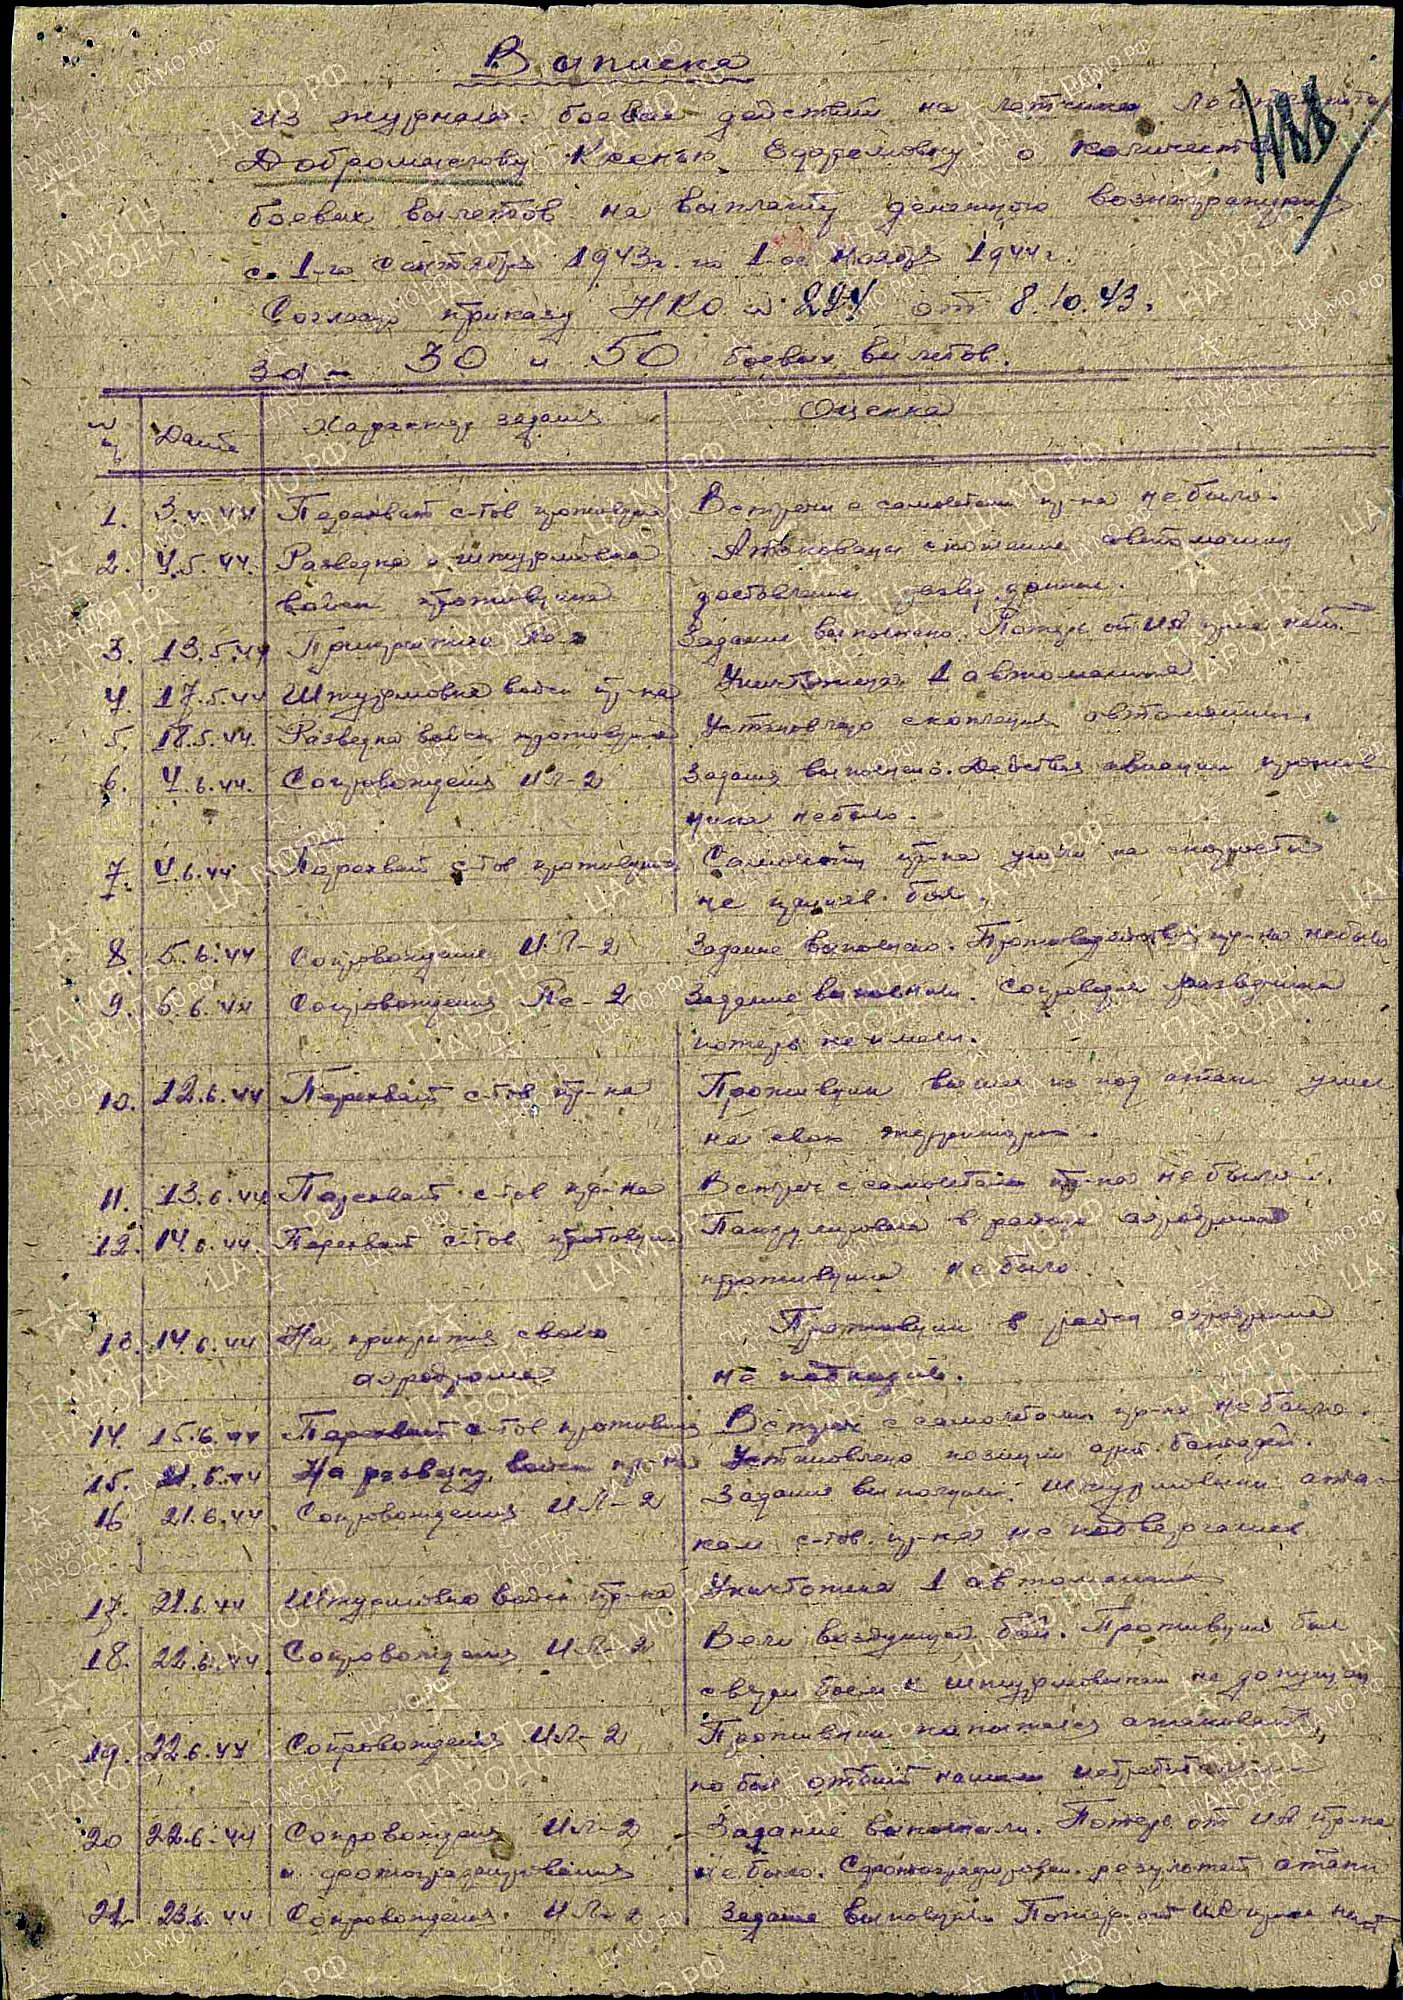 Выписка
из журнала боевых действий на летчика лейтенанта
Добромыслову Ефремовичу о количестве
боевых вылетов на выплату денежного вознаграждения
с 1-го сентября 1943г. по 1-ое ноября 1944г.
Согласно приказу НКО № 294 от 8.10.43.
за - 30 и 50 боевых вылетов.
Дата Характер задания Оценка
1. 3.5.44 Перехват с-тов противника Встречи с самолетами пр-ка не было.
2. 4.5.44. Разведка и штурмовка Атаковали скопление автомашин
войск противника доставлены развед. данные.
3. 13.5.44 Прикрытие Задание выполнено. Потерь от ИА пр-ка нет.
4. 17.5.44 Штурмовка войск пр-ка Уничтожена 1 автомашина
5. 18.5.44. Разведка войск противника Установлено скопление автомашин.
6. 4.6.44. Сопровождения ИЛ-2 Задания выполнено. Действия авиации против
ника не было.
7. 4.6.44 Перехват с-тов противника Самолеты пр-ка ушли на скорости
не приняв боя.
8 5.6.44 Сопровождение ИЛ-2 Задание выполнено. Противодействия пр-ка не было
9. 6.6.44 Сопровождения Пе-2 Задание выполнили. Сопровели разведчика
потерь не имели.
10. 12.6.44 Перехват с-тов пр-ка Противник вышел из под атаки ушел
на свою территорию.
11. 13.6.44 Перехват с-тов пр-ка Встреч с самолетами пр-ка не было.
12. 14.6.44. Перехват с-тов Патрулировали в районе аэродрома
противника не было
13. 14.6.44 На прикрытия своего Противник в район аэродрома
аэродрома не подходил.
14. 15.6.44 Перехват с-тов противника Встреч с самолетами пр-ка не было.
15. 21.6.44 На разведку войск пр-ка Установлено позиции арт. батарей.
16 21.6.44 Сопровождения ИЛ-2 Задания выполнили. Штурмовики ата-
кам с-тов пр-ка не подвергались
17. 21.6.44 Штурмовка войск пр-ка Уничтожена 1 автомашина
18. 22.6.44 Сопровождения ИЛ-2 Вели воздушный бой. Противник был
связан боем к штурмовикам не допущен
19. 22.6.44 Сопровождения ИЛ-2 Противник попытался атаковать,
но был отбит нашими истребителями
20 22.6.44 Сопровождения ИЛ-2 Задание выполнили. Потерь от ИА пр-ка
и фотографирования не было. Сфотографирован результат атаки
21. 23.6.44 Сопровождения ИЛ-2 Задание выполнили Потерь от ИА пр-ка нет